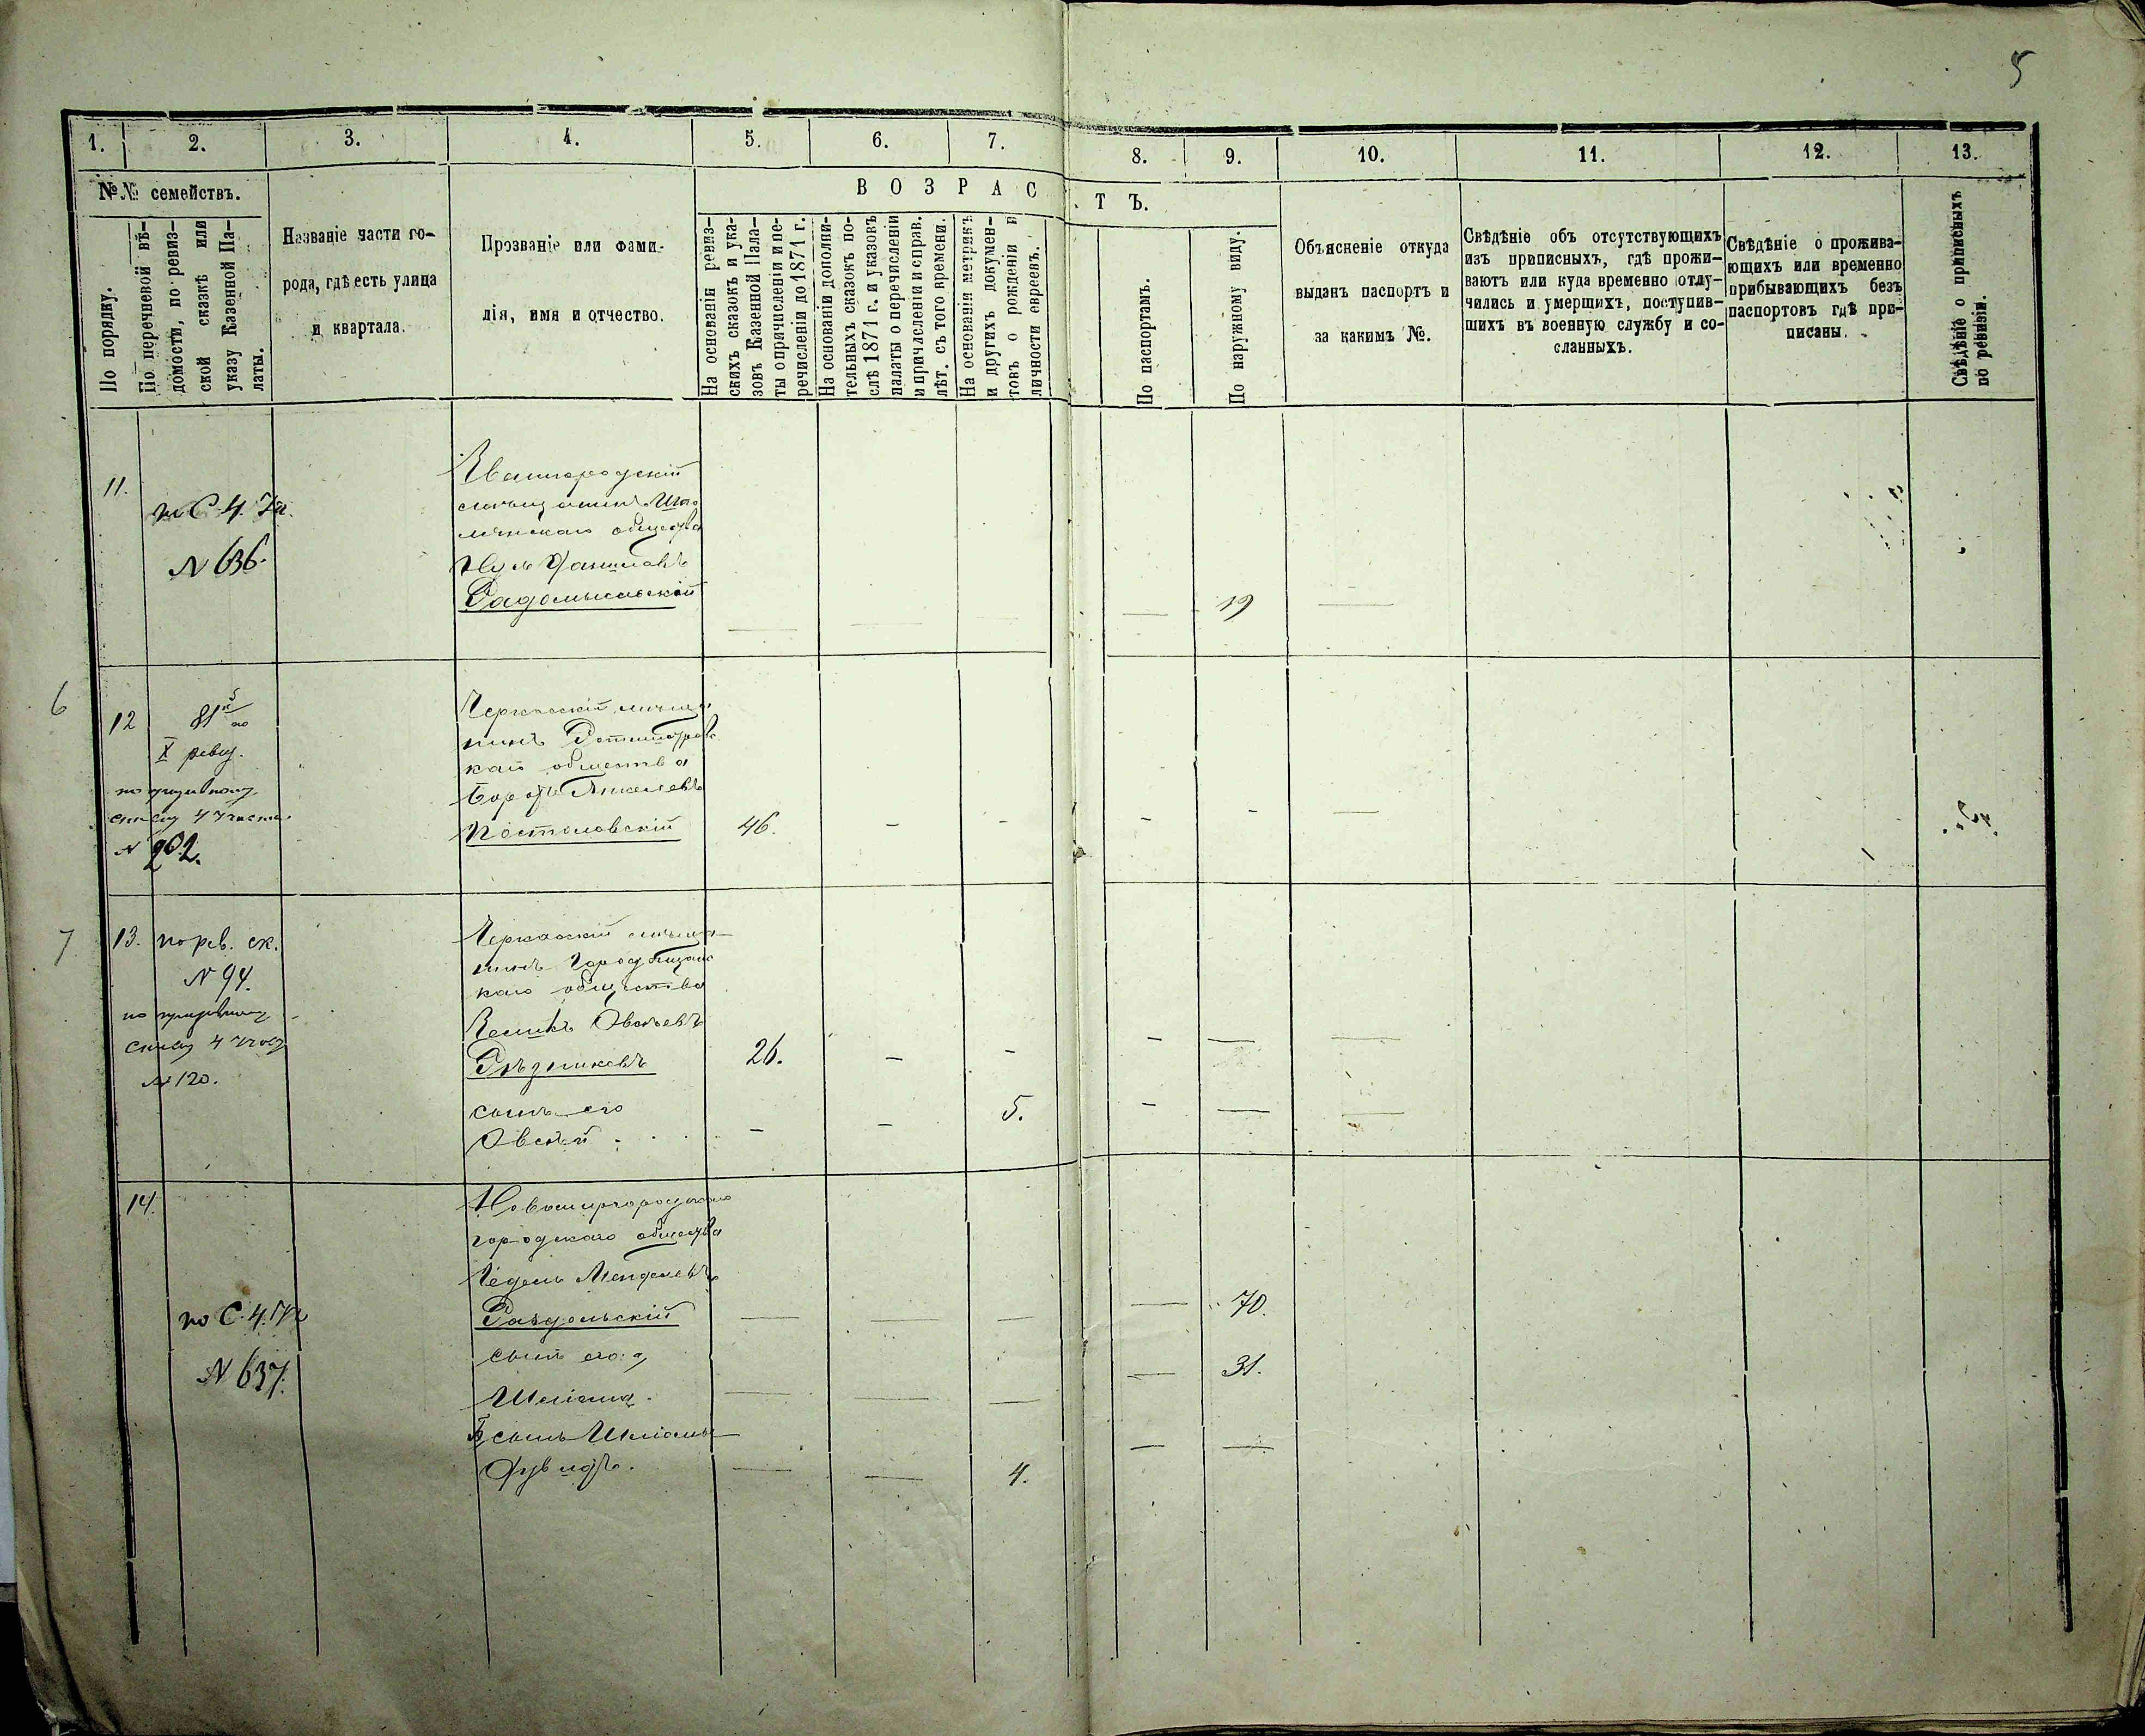 5
1. 2. 3. 4. 5. 6. 7. 8. 9. 10. 11. 12. 13.
№№ семействъ.
По порядку.
По перечневой вѣ-
домости, по ревиз-
ской сказкѣ или
указу Казенной Па-
латы.
Названіе части го-
рода, гдѣ есть улица
и квартала.
Прозваніе или фами-
лія, имя и отчество.
ВОЗРАСТЪ.
На основаніи ревиз-
скихъ сказокъ и ука-
зовъ Казенной Пала-
ты о причисленіи и пе-
речисленіи до 1871 г.
На основаніи дополни-
тельныхъ сказокъ по-
слѣ 1871 г. и указовъ
палаты о перечисленіи
и причисленіи и справ.
лѣт. съ того времени.
На основаніи метрикъ
и другихъ докумен-
товъ о рожденіи и
личности евреевъ.
По паспортамъ.
По наружному виду.
Объясненіе откуда
выданъ паспортъ и
за какимъ №.
Свѣдѣніе объ отсутствующихъ
изъ приписныхъ, гдѣ прожи-
ваютъ или куда временно отлу-
чились и умершихъ, поступив-
шихъ въ военную службу и со-
сланныхъ.
Свѣдѣніе о прожива-
ющихъ или временно
прибывающихъ безъ
паспортовъ гдѣ при-
писаны.
Свѣдѣніе о приписныхъ
по ревизіи.
11.
по С. 4. Уч.
N 636.
общества
Радомысльскій
19
6
12
81
X ревиз.
по призывному
списку 4 участка
N 202.
Черкасскій мѣща-
нинъ Ротмистровс-
каго общества
Постоловскій
46.
7
13. по рев. ск.
N 94.
по призывному
списку 4 участ
№ 120.
Черкасскій мѣща-
нинъ Городищенс
каго общества
Овсѣевъ
Рѣзниковъ
26.
сынъ его
Овсѣй
5.
14.
по С. 4. Уч
N 637.
Новомиргородскаго
городскаго общества
Менделевъ
Раздольскій
70.
сынъ его
Шліома
31.
сынъ Шліомы
4.